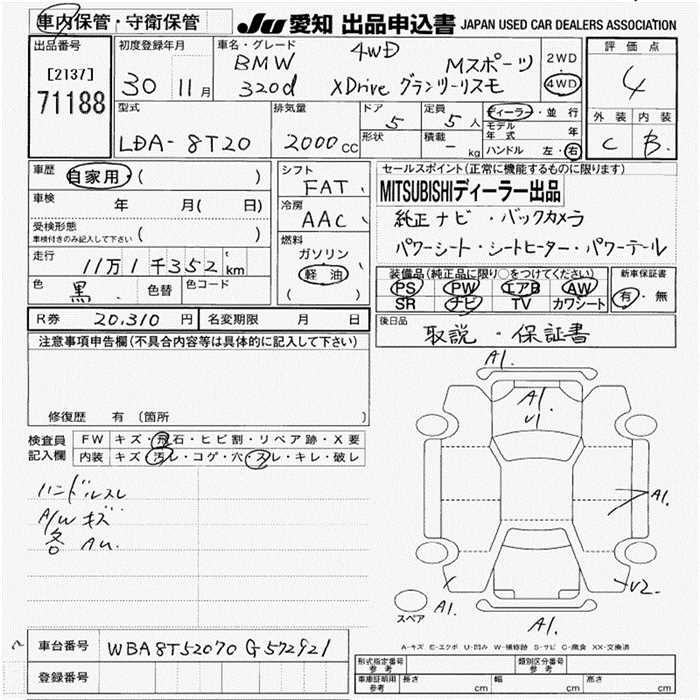 車内保管・守衛保管 JU 愛知 出品申込書 JAPAN USED CAR DEALERS ASSOCIATION
出品番号 初度登録年月 車名・グレード 4WD 2WD 評価点
[2137] 30 11月 BMW Mスポーツ 4WD 4
71188 320d XDrive グランツーリスモ
型式 排気量 ドア 定員 ディーラー・並行 外装 内装
LDA-8T20 2000cc 5 5人 モデル年式 年 C B
形状 積載 - kg ハンドル 左・右
車歴 自家用・( ) シフト FAT セールスポイント(正常に機能するものに限ります)
車検 年 月( 日) 冷房 AAC MITSUBISHIディーラー出品
受検形態 純正ナビ・バックカメラ
車検付きのみ記入して下さい ( ) 燃料 パワーシート・シートヒーター・パワーテール
走行 11万1千352km ガソリン
軽油
( )
装備品(純正品に限り○をつけてください) 新車保証書
色 黒 色替 色コード PS PW エアB AW 有・無
SR ナビ TV カワシート
R券 20,310円 名変期限 月 日 後日品 取説・保証書
注意事項申告欄(不具合内容等は具体的に記入して下さい)
修復歴 有(箇所
検査員 FW キズ・飛石・ヒビ割・リペア跡・X要
記入欄 内装 キズ・汚レ・コゲ・穴・スレ・キレ・破レ
ハンドルスレ
A/Wキズ
各AU.
A1.
A1.
U1
A1.
U2
A1.
A1.
スペア
A-キズ E-エクボ U-凹み W-補修跡 S-サビ C-腐食 XX-交換済
車台番号 WBA8T52070G572921
登録番号
形式指定番号 参考 類別区分番号 参考
車庫証明用 参考 長さ cm 幅 cm 高さ cm